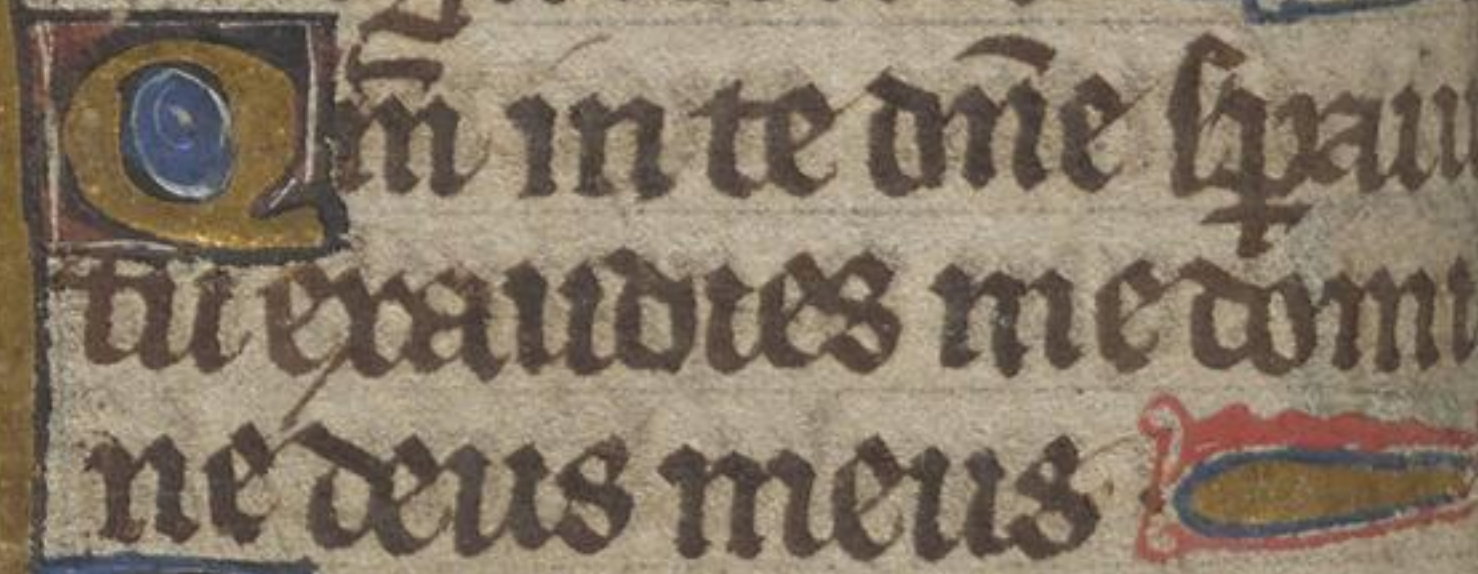 Qm̅ in te dn̅e sp̲aui
tu exaudies me domi
ne deus meus